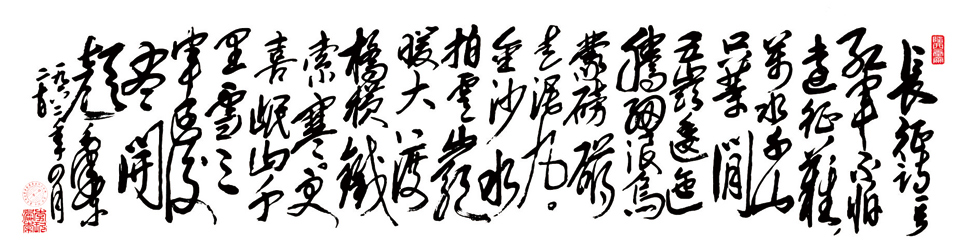 長征詩一首
紅軍不怕
遠征難
萬水千山
只等閒
五嶺逶迤
騰細浪烏
蒙磅礴
走泥丸。
金沙水
拍雲崖
暖大渡
橋橫鐵
索寒。更
喜岷山千
里雪三
軍過後
盡開
顏 毛澤東
一九六二年四月
二十日